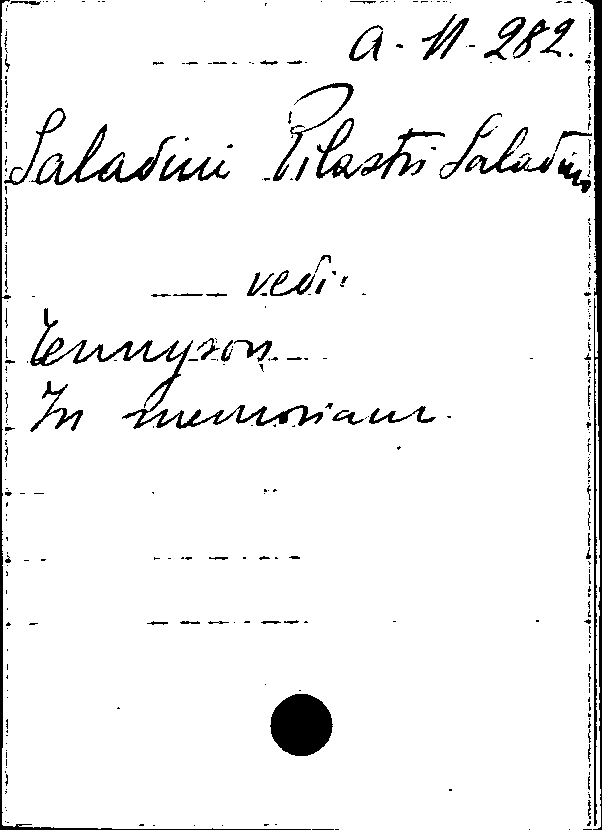 A-11-282.
Saladini Pilastri Saladino
vedi:
Tennyson
In memoriam.